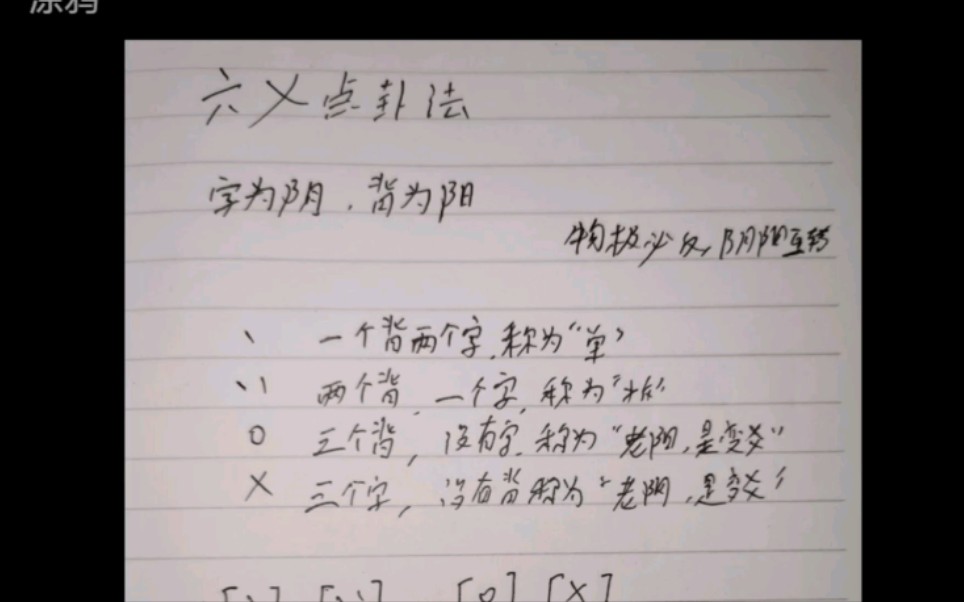 涂鸦
六乂点卦法
字为阴，背为阳
物极必反，阴阳互转
丶 一个背两个字，称为“单”
丶丶 两个背，一个字，称为“拆”
O 三个背，没有字，称为“老阳，是变爻”
X 三个字，没有背称为“老阴，是变爻”
[丶] [丶丶] [O] [X]